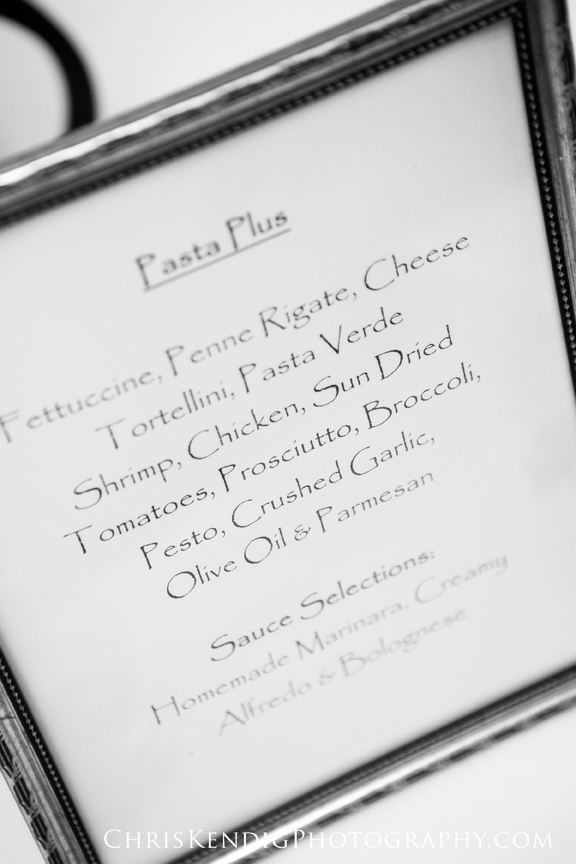 Pasta Plus
Fettuccine, Penne Rigate, Cheese
Tortellini, Pasta Verde
Shrimp, Chicken, Sun Dried
Tomatoes, Prosciutto, Broccoli,
Pesto, Crushed Garlic,
Olive Oil & Parmesan
Sauce Selections:
Homemade Marinara, Creamy
Alfredo & Bolognese
CHRISKENDIGPHOTOGRAPHY.COM